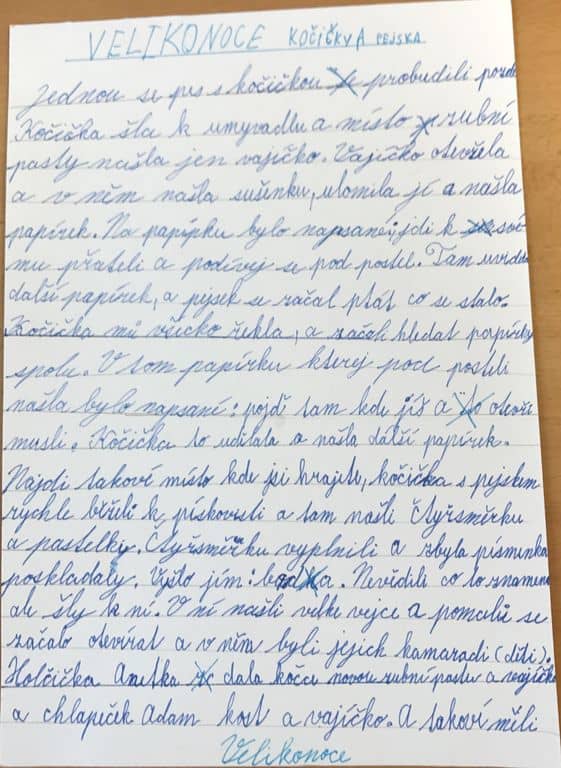 VELIKONOCE KOČIČKY A PEJSKA
Jednou se pes s kočičkou probudili pozdě
Kočička šla k umyvadlu a místo zubní
pasty našla jen vajíčko. Vajíčko otevřela
a v něm našla sušenku, ulomila jí a našla
papírek. Na papírku bylo napsané: jdi k své
mu příteli a podívej se pod postel. Tam uviděla
další papírek, a pejsek se začal ptát co se stalo.
Kočička mů všecko řekla, a začali hledat papírky
spolu. V tom papírku kterej pod postelí
našla bylo napsané: pojď tam kde jíš a otevři
musli. Kočička to udělala a našla dálší papírek.
Najdi takové místo kde jsi hrajete, kočička s pejskem
rychle běželi k pískovisti a tam našli čtyřsměrku
a pastelky. Čtyřsměrku vyplnili a zbyla písmenka
poskladaly. Vyšlo jím: Nevěděli co to znamená
ale šly k ní. V ní našli velké vejce a pomalů se
začalo otevírat a v něm byli jejich kamaradi (děti).
Holčička Anetka dala kočce novou zubní pastu a vajíčko
a chlapeček Adam kost a vajíčko. A takoví měli
Velikonoce